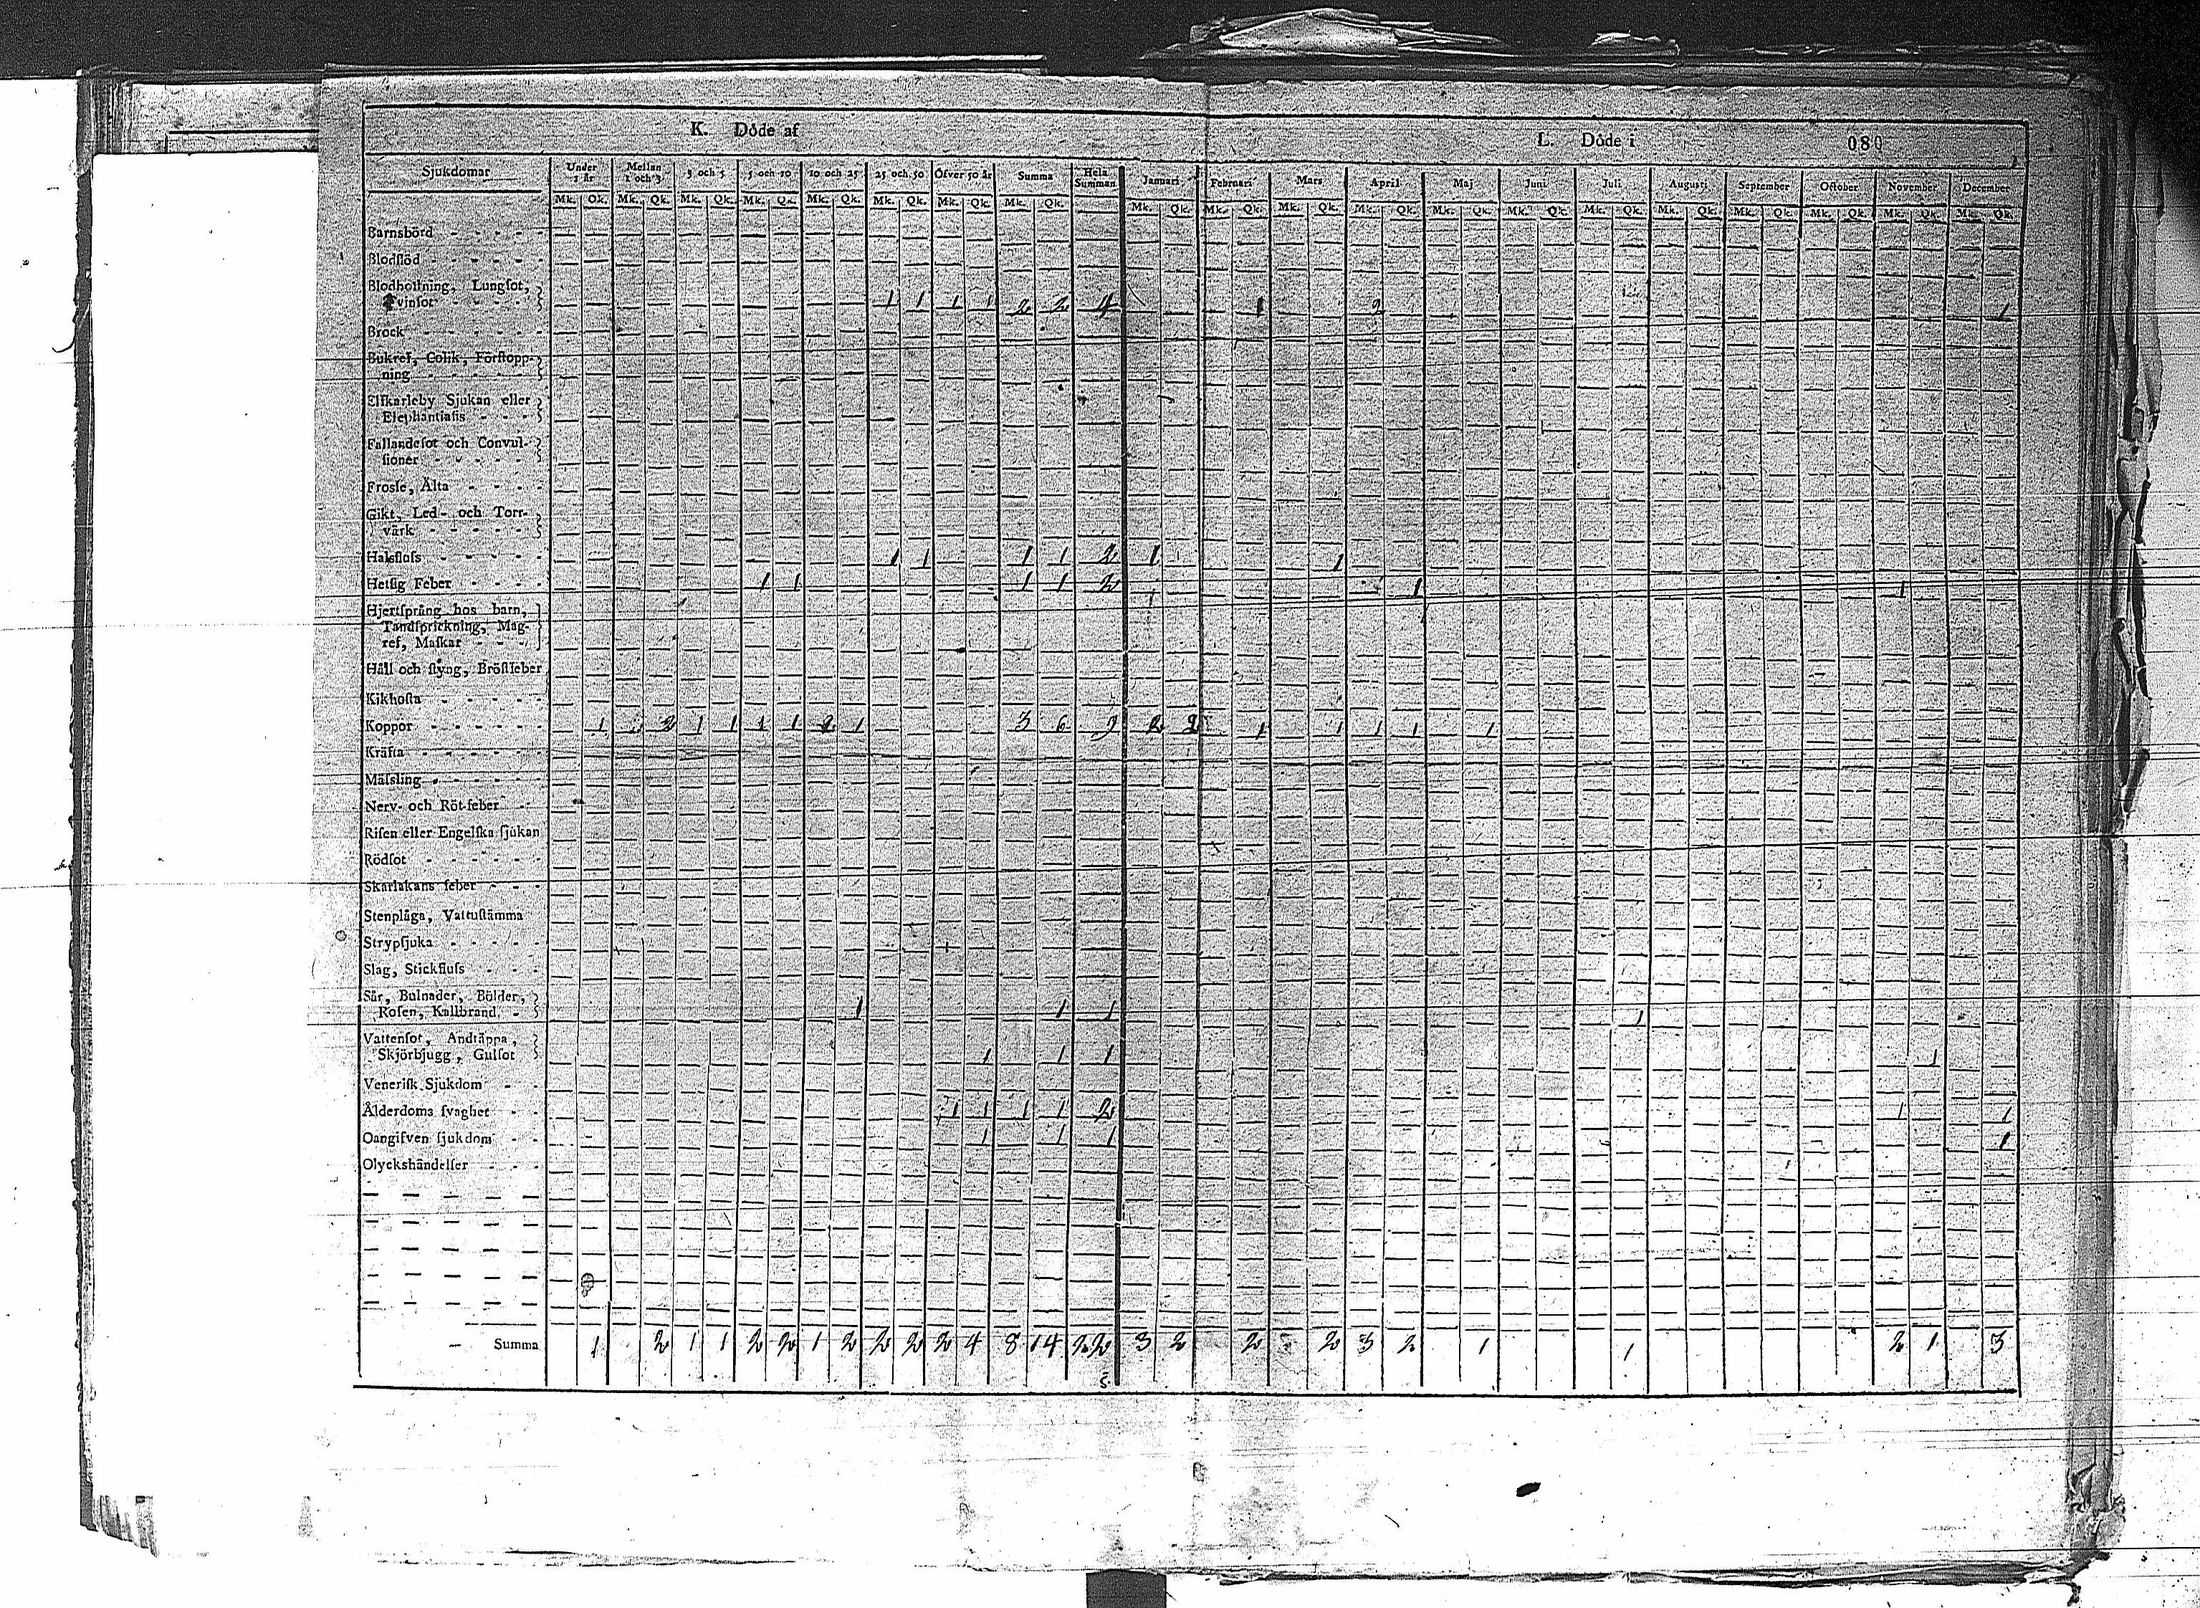 K. Döde af
L. Döde i 080
Sjukdomar Under 1 år Mellan 1 och 3 3 och 5 5 och 10 10 och 25 25 och 50 Öfver 50 år Summa Hela Summan Januari Februari Mars April Maj Juni Juli Augusti September October November December
Mk. Qk. Mk. Qk. Mk. Qk. Mk. Qk. Mk. Qk. Mk. Qk. Mk. Qk. Mk. Qk. Mk. Qk. Mk. Qk. Mk. Qk. Mk. Qk. Mk. Qk. Mk. Qk. Mk. Qk. Mk. Qk. Mk. Qk. Mk. Qk. Mk. Qk. Mk. Qk.
Barnsbörd
Blodflöd
Blodhostning, Lungsot,
Tvinsot 1 1 1 1 2 2 4 1 2 1
Bråck
Bukref, Colik, Förstopp-
ning
Elfkarleby Sjukan eller
Elephantiasis
Fallandesot och Convul-
sioner
Frossa, Älta
Gikt, Led- och Torr-
värk
Halsfluss 1 1 1 1 2 1 1
Hetsig Feber 1 1 1 1 2 1 1
Hjertsprång hos barn,
Tandsprickning, Mag-
ref, Maskar
Håll och styng, Bröstfeber
Kikhosta
Koppor 1 2 1 1 1 1 1 3 6 9 2 2 1 1 1 1 1
Kräfta
Mässling
Nerv- och Röt-feber
Risen eller Engelska sjukan
Rödsot
Skarlakans feber
Stenplåga, Vattustämma
Strypsjuka
Slag, Stickfluss
Sår, Bulnader, Bölder,
Rosen, Kallbrand 1 1 1 1
Vattensot, Andtäppa,
Skjörbjugg, Gulsot 1 1 1 1
Venerisk Sjukdom
Ålderdoms svaghet 1 1 1 1 2 1 1
Oangifven sjukdom 1 1 1 1
Olyckshändelser
Summa 1 2 1 1 2 2 1 2 2 2 2 4 8 14 22 3 2 2 2 3 2 1 1 2 1 3